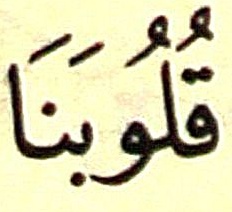 قُلُوبَنَا